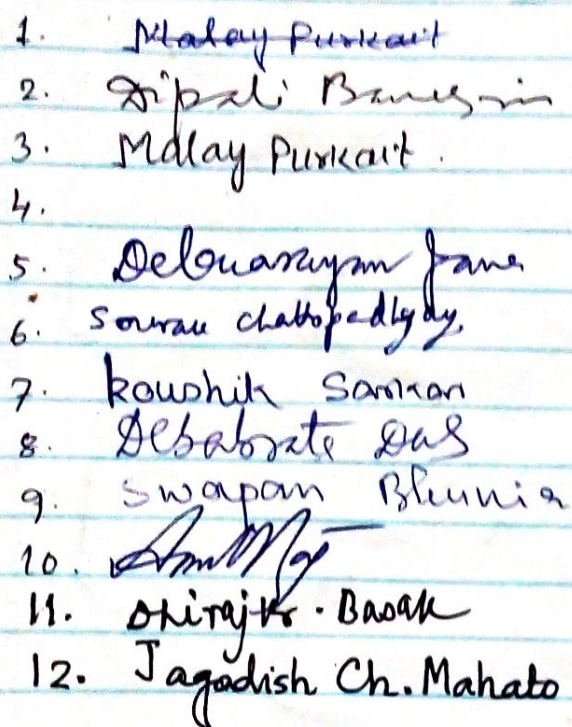 1. Malay Purkait
2. Dipali
3. Malay Purkait.
4.
5. Debnarayan Jana
6. Sourav Chattopadhyay,
7. Koushik Sarkar
8. Debabrata Das
9. Swapan Bhunia
10.
11. Dhiraj Kr. Basak
12. Jagadish Ch. Mahato